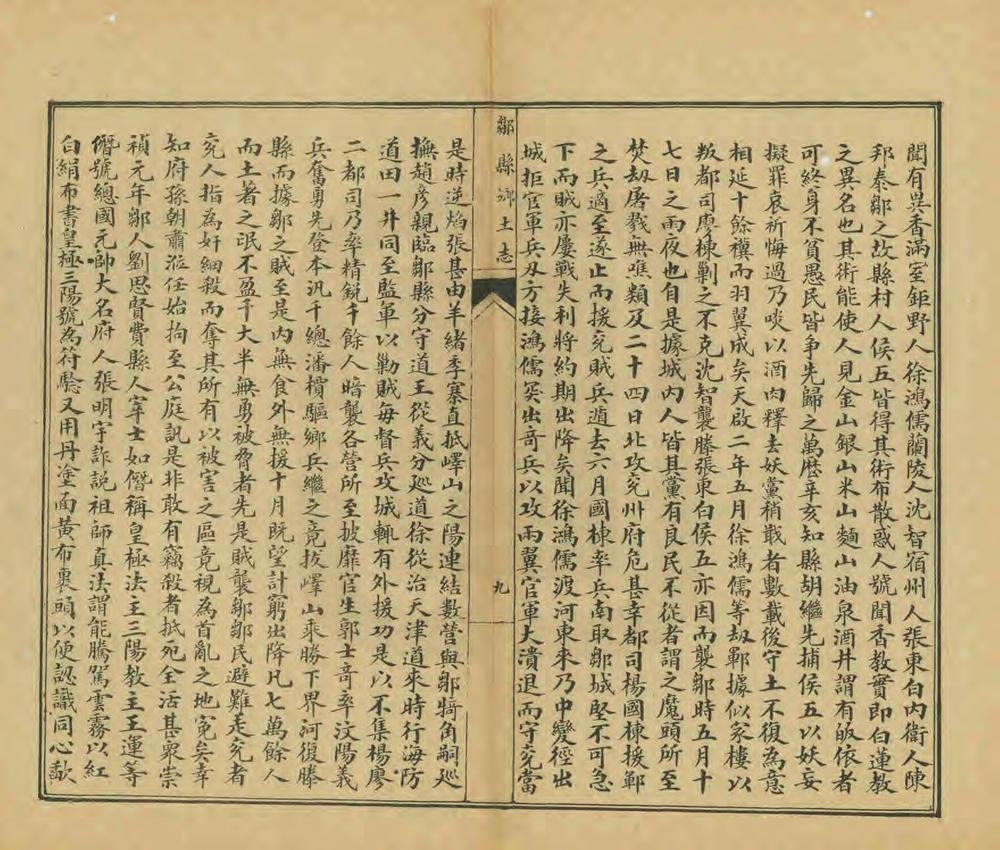 聞有異香滿室鉅野人徐鴻儒蘭陵人沈智宿州人張東白內衛人陳
邦泰鄒之故縣村人侯五皆得其術布散惑人號聞香教實即白蓮教
之異名也其術能使人見金山銀山米山麵山油泉酒井謂有皈依者
可終身不貧愚民皆争先歸之萬厯辛亥知縣胡繼先捕侯五以妖妄
擬罪哀祈悔過乃啖以酒肉釋去妖黨稍戢者數載後守土不復為意
相延十餘禩而羽翼成矣天啟二年五月徐鴻儒等刼鄆據似家樓以
叛都司廖棟剿之不克沈智襲滕張東白侯五亦因而襲鄒時五月十
七日之雨夜也自是據城內人皆其黨有良民不從者謂之魔頭所至
焚刼屠戮無噍類及二十四日北攻兖州府危甚幸都司楊國棟援鄆
之兵適至遂止而援兖賊兵遁去六月國棟率兵南取鄒城堅不可急
下而賊亦屢戰失利將約期出降矣聞徐鴻儒渡河東來乃中變徑出
城拒官軍兵刃方接鴻儒突出奇兵以攻兩翼官軍大潰退而守兖當
鄒縣鄉土志
九
是時逆焰張甚由羊緒季寨直抵嶧山之陽連結數營與鄒犄角嗣巡
撫趙彥親臨鄒縣分守道王從義分巡道徐從治天津道來時行海防
道田一井同至監軍以勦賊每督兵攻城輒有外援功是以不集楊廖
二都司乃率精銳千餘人暗襲各營所至披靡官生郭士奇率汶陽義
兵奮勇先登本汛千總潘櫝驅鄉兵繼之竟拔嶧山乘勝下界河復滕
縣而據鄒之賊至是內無食外無援十月既望計窮出降凡七萬餘人
而土著之氓不盈千大半無勇被脅者先是賊襲鄒鄒民避難走兖者
兖人指為奸細殺而奪其所有以被害之區竟視為首亂之地冤矣幸
知府孫朝肅涖任始拘至公庭訊是非敢有竊殺者抵死全活甚衆崇
禎元年鄒人劉思賢費縣人宰士如僭稱皇極法主三陽教主王運等
僭號總國元帥大名府人張明宇詐説祖師真法謂能騰駕雲霧以紅
白絹布書皇極三陽號為符驗又用丹塗面黄布裹頭以便認識同心歃